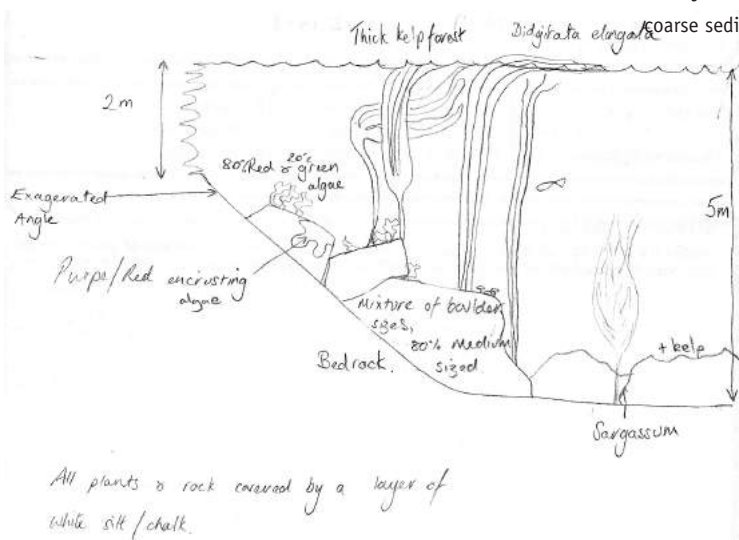 coarse sedi
Thick kelp forest
Didgitata elongata
2m
80% Red & 20% green
algae
Exagerated
Angle
5m
Purpe/Red encrusting
algae
Mixture of boulder
sizes,
80% Medium
sized.
+ kelp
Bedrock.
Sargassum
All plants & rock covered by a layer of
white silt/chalk.